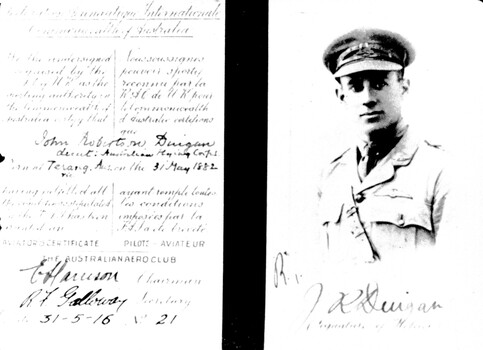 Aéronautique Internationale
Commonwealth of Australia
We the undersigned
recognised by the
as the
sporting authority in
the Commonwealth of
Australia certify that
Nous soussignés
pouvoir sportif
reconnu par la
pour
le Commonwealth
d'Australie certifions
que
John Robertson Duigan
Lieut. Australian Flying Corps
Born at Terang Aus on the 31 May 1882
having fulfilled all
the conditions stipulated
by the
ayant rempli toutes
les conditions
imposées par la
AVIATORS CERTIFICATE PILOTE-AVIATEUR
THE AUSTRALIAN AERO CLUB
C Harrison Chairman
R F Galloway Secretary
31-5-16 No 21
J R Duigan
Signature of Holder